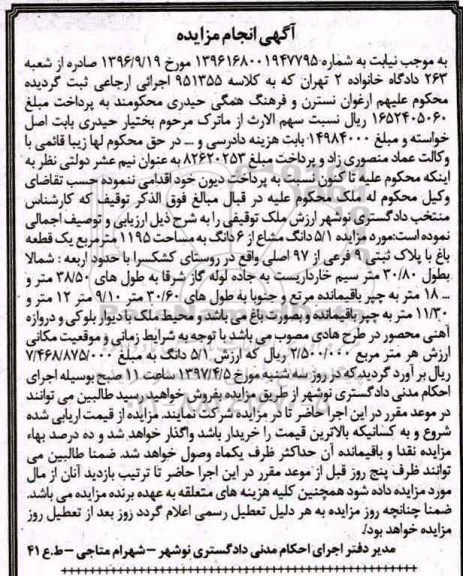 آگهی انجام مزایده
به موجب نیابت به شماره ۱۳۹۶۱۶۸۰۰۱۹۴۷۷۹۵ مورخ ۱۳۹۶/۹/۱۹ صادره از شعبه
۲۶۳ دادگاه خانواده ۲ تهران که به کلاسه ۹۵۱۳۵۵ اجرائی ارجاعی ثبت گردیده
محکوم علیهم ارغوان نسترن و فرهنگ همگی حیدری محکومند به پرداخت مبلغ
۱۶۵۲۴۰۵۰۶۰ ریال نسبت سهم الارث از ماترک مرحوم بختیار حیدری بابت اصل
خواسته و مبلغ ۱۴۹۸۴۰۰۰ بابت هزینه دادرسی و ... در حق محکوم لها زیبا قائمی با
وکالت عماد منصوری زاد و پرداخت مبلغ ۸۲۶۲۰۲۵۳ به عنوان نیم عشر دولتی نظر به
اینکه محکوم علیه تاکنون نسبت به پرداخت دیون خود اقدامی ننموده حسب تقاضای
وکیل محکوم له ملک محکوم علیه در قبال مبالغ فوق الذکر توقیف که کارشناس
منتخب دادگستری نوشهر ارزش ملک توقیفی را به شرح ذیل ارزیابی و توصیف اجمالی
نموده است:مورد مزایده ۵/۱ دانگ مشاع از ۶ دانگ به مساحت ۱۱۹۵ مترمربع یک قطعه
باغ با پلاک ثبتی ۹ فرعی از ۹۷ اصلی واقع در روستای کشکسرا با حدود اربعه : شمالا
بطول ۳۰/۸۰ متر سیم خارداریست به جاده لوله گاز شرقا به طول های ۳۸/۵۰ متر و
ـ ۱۸ متر به چپر باقیمانده مرتع و جنوبا به طول های ۳۰/۶۰ متر ۹/۱۰ متر ۱۲ متر و
۱۱/۳۰ متر به چپر باقیمانده و بصورت باغ می باشد و محیط ملک با دیوار بلوکی و دروازه
آهنی محصور در طرح هادی مصوب می باشد با توجه به شرایط زمانی و موقعیت مکانی
ارزش هر متر مربع ۲/۵۰۰/۰۰۰ ریال که ارزش ۵/۱ دانگ به مبلغ ۷/۴۶۸/۸۷۵/۰۰۰
ریال بر آورد گردید که در روز سه شنبه مورخ ۱۳۹۷/۴/۵ ساعت ۱۱ صبح بوسیله اجرای
احکام مدنی دادگستری نوشهر از طریق مزایده بفروش خواهید رسید طالبین می توانند
در موعد مقرر در این اجرا حاضر تا در مزایده شرکت نمایند. مزایده از قیمت ارزیابی شده
شروع و به کسانیکه بالاترین قیمت را خریدار باشد واگذار خواهد شد و ده درصد بهاء
مزایده نقدا و باقیمانده آن حداکثر ظرف یکماه وصول خواهد شد. ضمنا طالبین می
توانند ظرف پنج روز قبل از موعد مقرر در این اجرا حاضر تا ترتیب بازدید آنان از مال
مورد مزایده داده شود همچنین کلیه هزینه های متعلقه به عهده برنده مزایده می باشد.
ضمنا چنانچه روز مزایده به هر دلیل تعطیل رسمی اعلام گردد روز بعد از تعطیل روز
مزایده خواهد بود/.
مدیر دفتر اجرای احکام مدنی دادگستری نوشهر – شهرام متاجی – ط.ع ۴۱